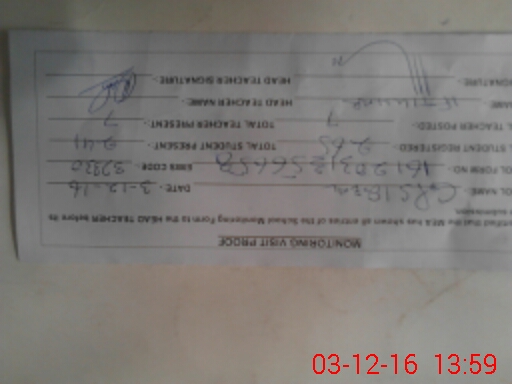 MONITORING VISIT PROCE
ertified that the MEA has shown all entries of the School Monitoring Form to the HEAD TEACHER before its
submission.
OL NAME: DATE: 3-12-16
OL FORM NO EMIS CODE: 32330
OL STUDENT REGISTERED: 265 TOTAL STUDENT PRESENT: 241
L TEACHER POSTED: 7 TOTAL TEACHER PRESENT: 7
NAME: HEAD TEACHER NAME:
GNATURE: HEAD TEACHER SIGNATURE:
03-12-16 13:59